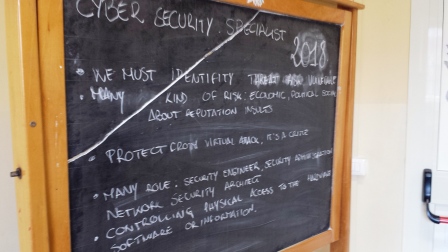 CYBER SECURITY SPECIALIST
2018
• WE MUST IDENTIFITY THREAT RISK VULNERABLE
• MANY KIND OF RISK: ECONOMIC, POLITICAL SOCIAL
ABOUT REPUTATION INSULTS
• PROTECT FROM VIRTUAL ATTACK, IT'S A CRIME
• MANY ROLE: SECURITY ENGINEER, SECURITY ADMINISTRATION
NETWORK SECURITY ARCHITECT
• CONTROLLING PHYSICAL ACCESS TO THE HARDWARE
SOFTWARE OR INFORMATION.